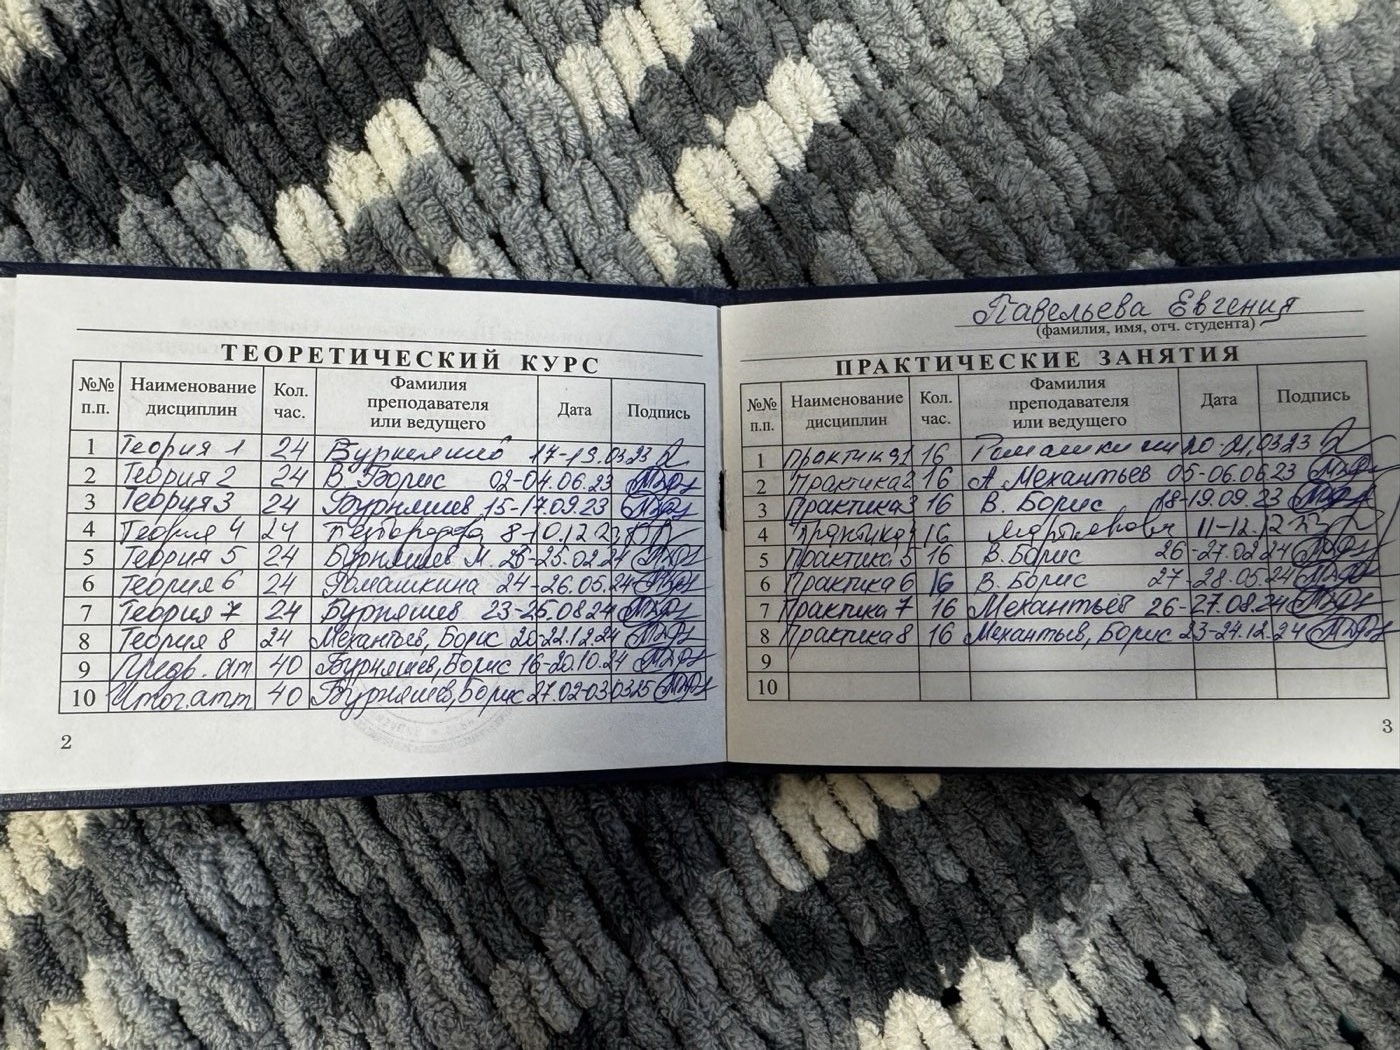 ТЕОРЕТИЧЕСКИЙ КУРС
№№ п.п. Наименование дисциплин Кол. час. Фамилия преподавателя или ведущего Дата Подпись
1 Теория 1 24 17-19.03.23
2 Теория 2 24 В. Борис 02-04.06.23
3 Теория 3 24 Бурняшев 15-17.09.23
4 Теория 4 24
5 Теория 5 24 Бурняшев М.
6 Теория 6 24 Ромашкина 24-26.05.24
7 Теория 7 24 Бурняшев 23-25.08.24
8 Теория 8 24 Механтьев, Борис 20-22.12.24
9 Предв. ат 40 Бурняшев, Борис 16-20.10.24
10 Итог. атт 40 Бурняшев, Борис 27.02-03.03.25
2
Павельева Евгения
(фамилия, имя, отч. студента)
ПРАКТИЧЕСКИЕ ЗАНЯТИЯ
№№ п.п. Наименование дисциплин Кол. час. Фамилия преподавателя или ведущего Дата Подпись
1 Практика 1 16 20-21.03.23
2 Практика 2 16 А. Механтьев 05-06.06.23
3 Практика 3 16 В. Борис 18-19.09.23
4 Практика 4 16
5 Практика 5 16 В. Борис 26-27.02.24
6 Практика 6 16 В. Борис 27-28.05.24
7 Практика 7 16 Механтьев 26-27.08.24
8 Практика 8 16 Механтьев, Борис 23-24.12.24
9
10
3